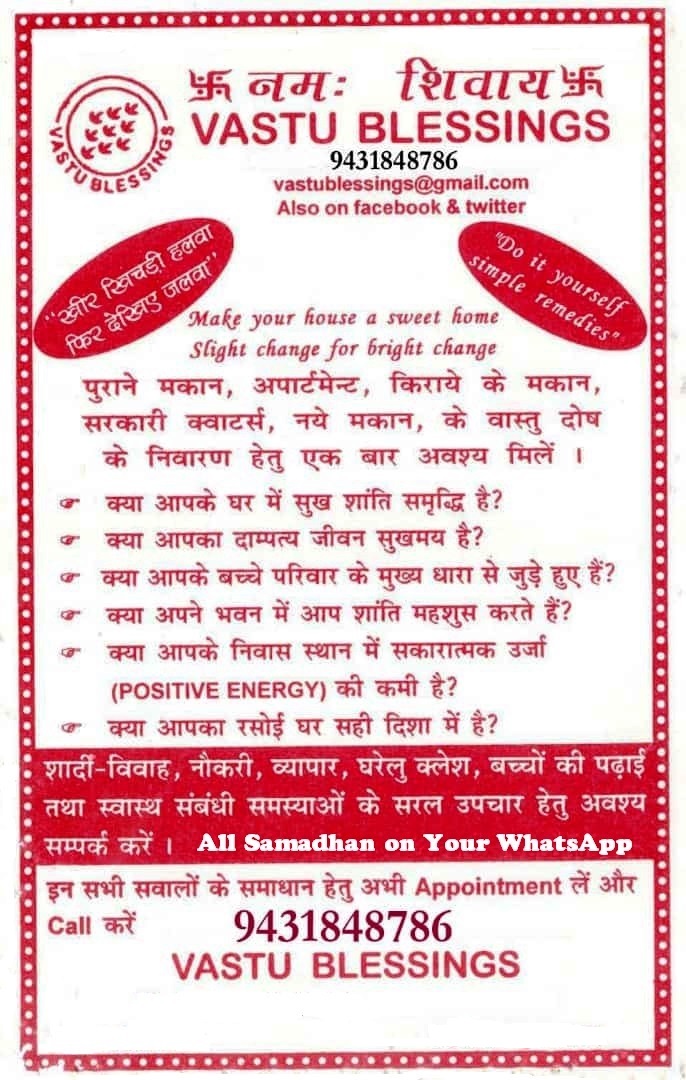 卐 नमः शिवाय 卐
VASTU BLESSINGS
VASTU BLESSINGS
9431848786
vastublessings@gmail.com
Also on facebook & twitter
"खीर खिचड़ी हलवा
फिर देखिए जलवा"
"Do it yourself
simple remedies"
Make your house a sweet home
Slight change for bright change
पुराने मकान, अपार्टमेन्ट, किराये के मकान,
सरकारी क्वाटर्स, नये मकान, के वास्तु दोष
के निवारण हेतु एक बार अवश्य मिलें ।
☞ क्या आपके घर में सुख शांति समृद्धि है?
☞ क्या आपका दाम्पत्य जीवन सुखमय है?
☞ क्या आपके बच्चे परिवार के मुख्य धारा से जुड़े हुए हैं?
☞ क्या अपने भवन में आप शांति महशुस करते हैं?
☞ क्या आपके निवास स्थान में सकारात्मक उर्जा
(POSITIVE ENERGY) की कमी है?
☞ क्या आपका रसोई घर सही दिशा में है?
शादी-विवाह, नौकरी, व्यापार, घरेलु क्लेश, बच्चों की पढ़ाई
तथा स्वास्थ संबंधी समस्याओं के सरल उपचार हेतु अवश्य
सम्पर्क करें । All Samadhan on Your WhatsApp
इन सभी सवालों के समाधान हेतु अभी Appointment लें और
Call करें 9431848786
VASTU BLESSINGS